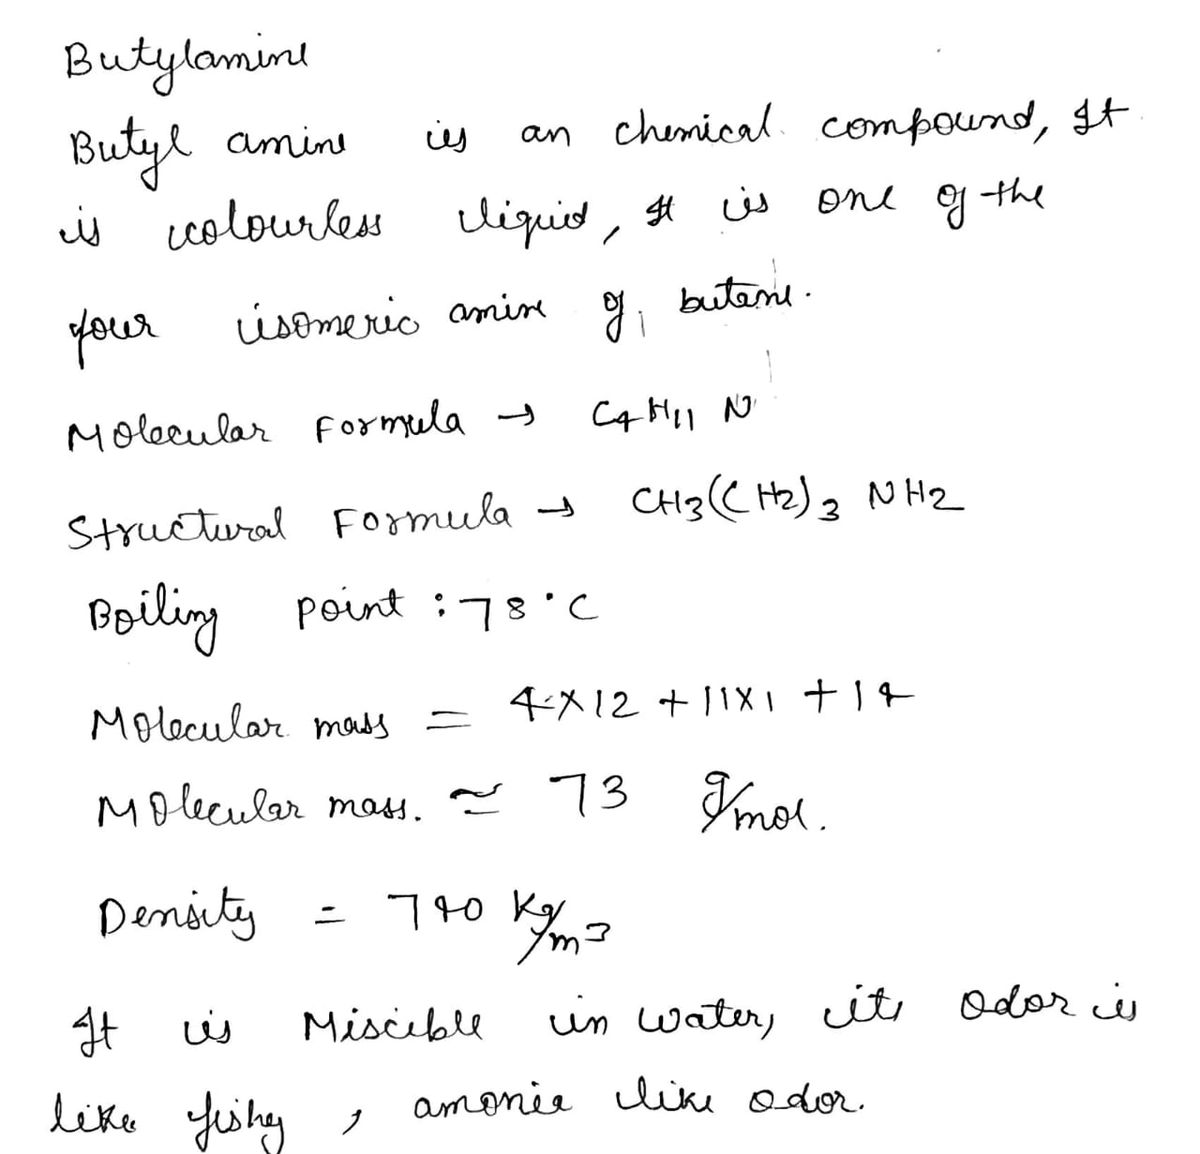 Butylamine
Butyl amine is an chemical compound, It
is colourless liquid, It is one of the
four isomeric amine of butane.
Molecular Formula → C4H11 N
Structural Formula → CH3(CH2)3 NH2
Boiling point : 78°C
Molecular mass = 4×12 + 11×1 + 14
Molecular mass. ≃ 73 g/mol.
Density = 740 Kg/m3
It is Miscible in water, its odor is
like fishy, amonia like odor.